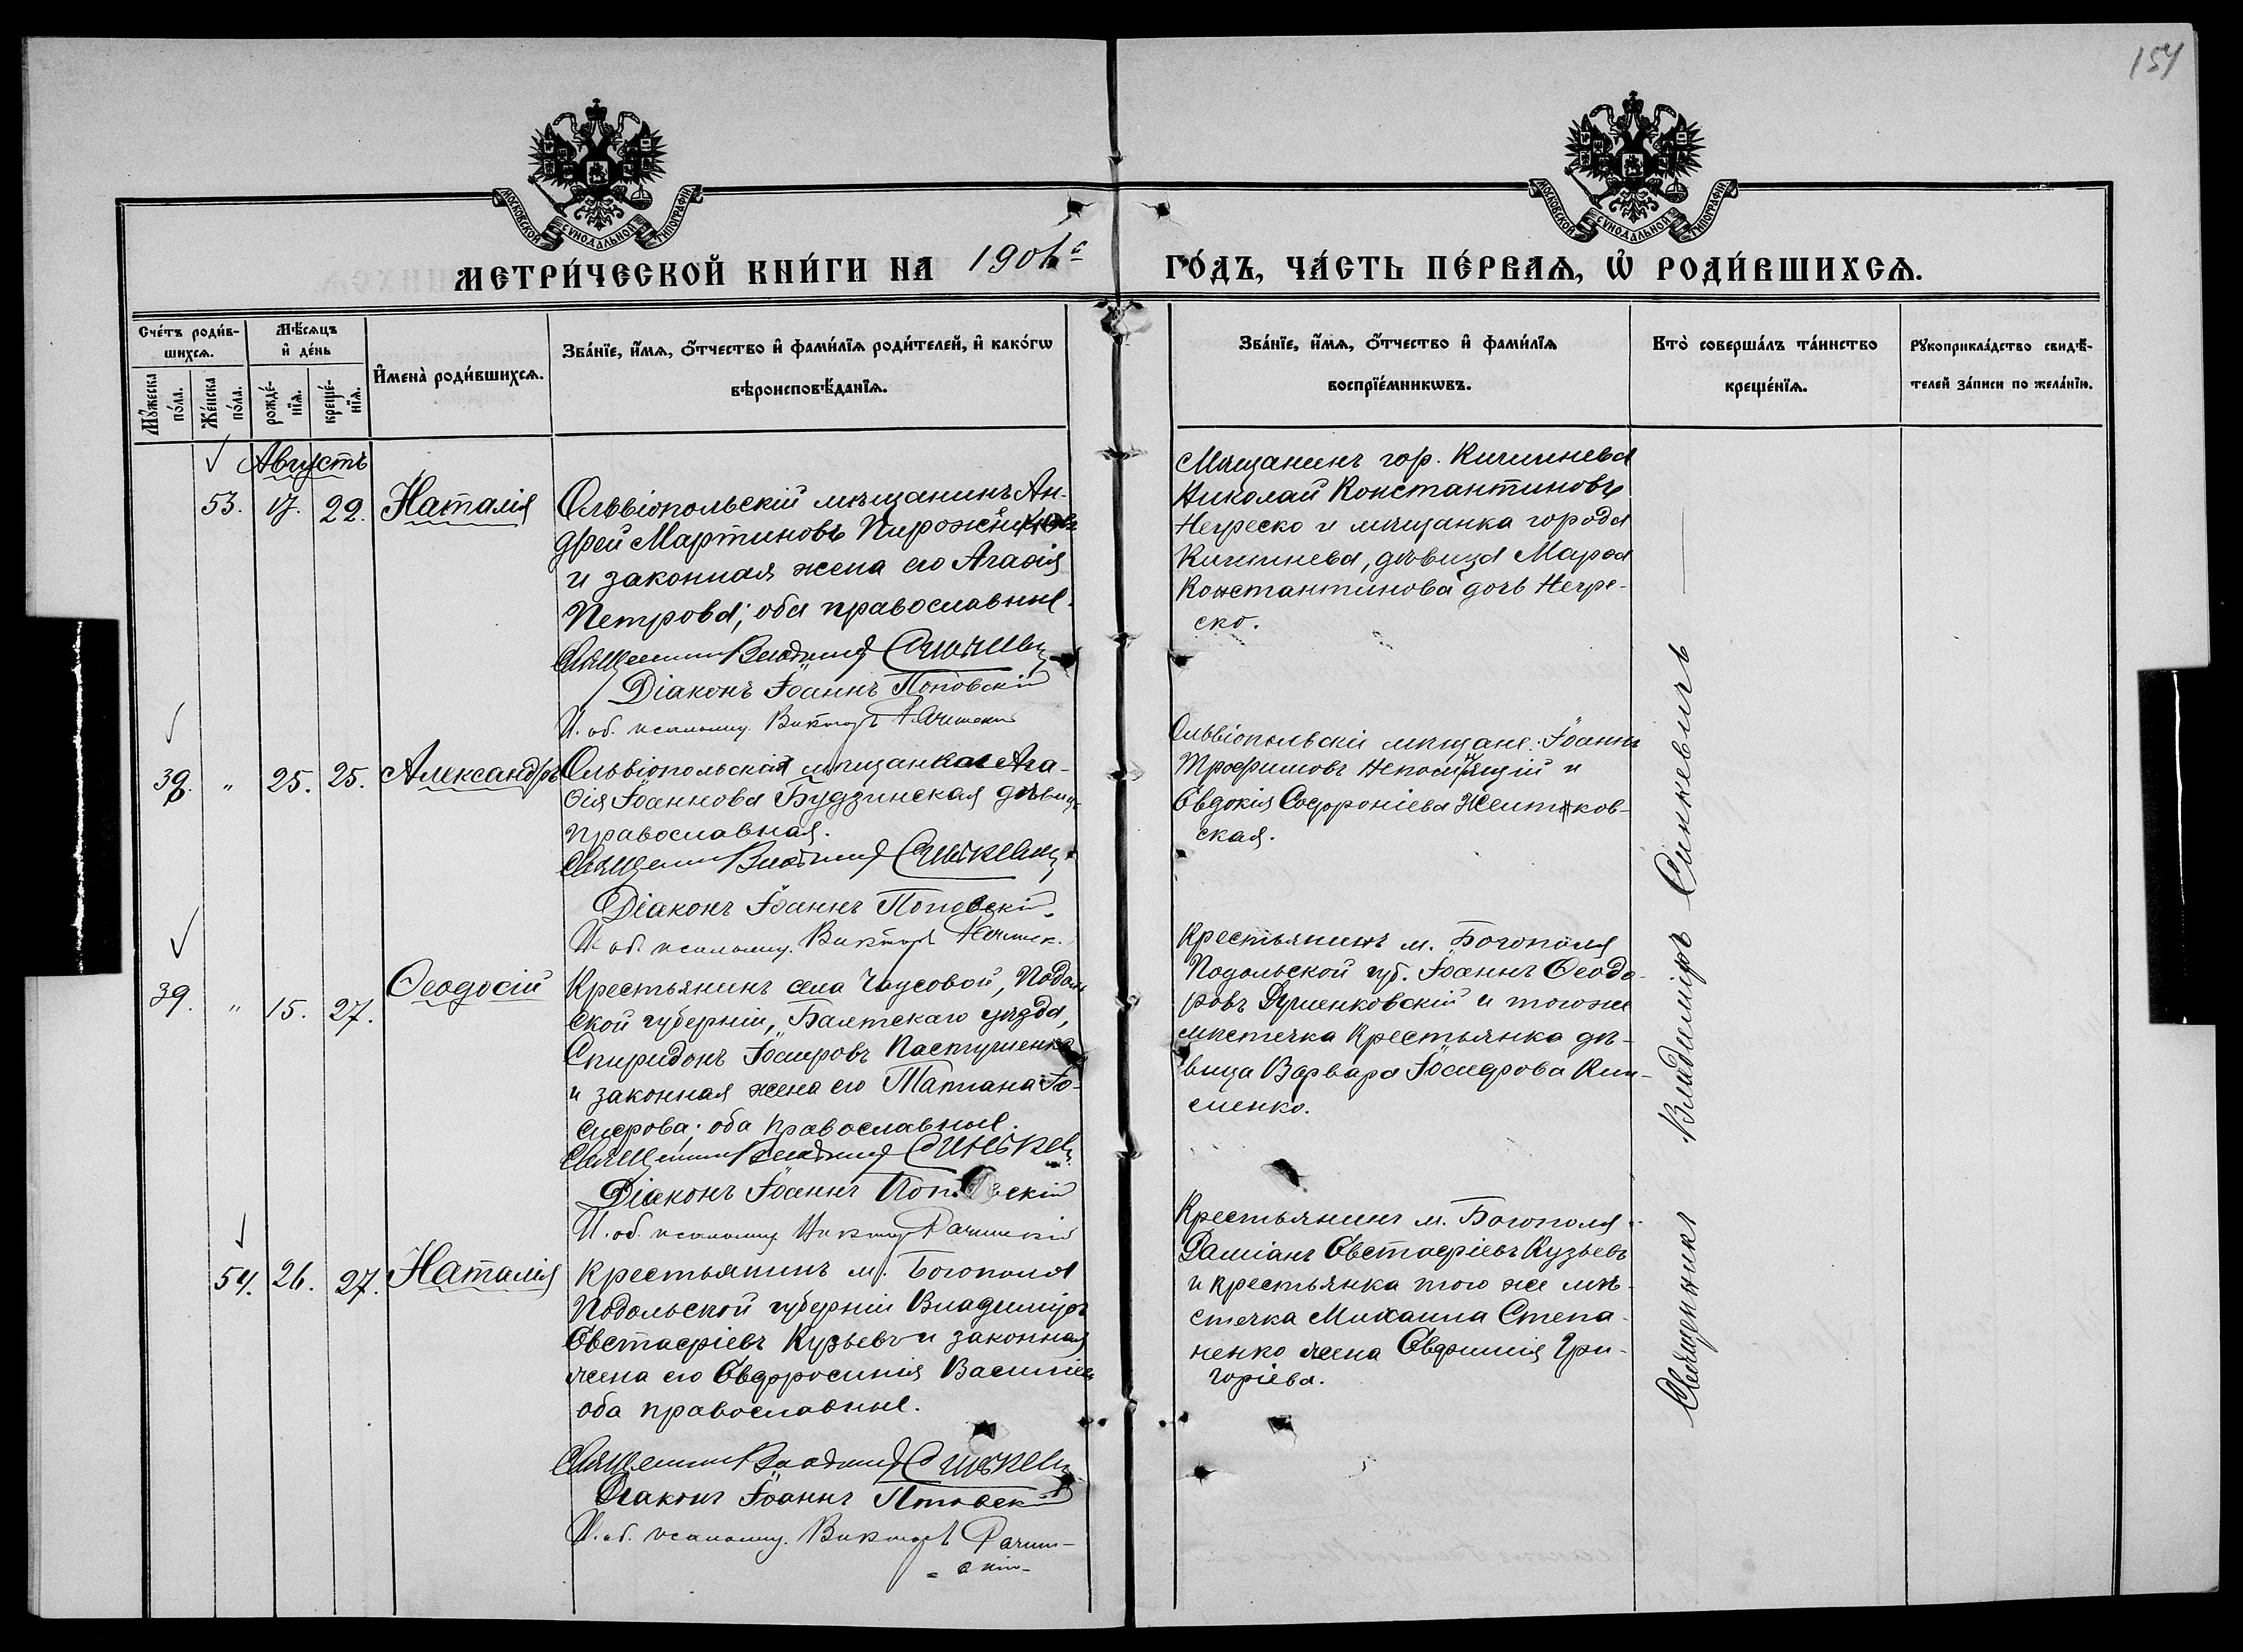 154
МОСКОВСКОЙ СУНОДАЛЬНОЙ ТИПОГРАФІИ
МОСКОВСКОЙ СУНОДАЛЬНОЙ ТИПОГРАФІИ
МЕТРИ́ЧЕСКОЙ КНИ́ГИ НА 190
ГО́ДЪ, ЧА́СТЬ ПЕ́РВАѦ, Ѡ҆ РОДИ́ВШИХСѦ.
Сче́тъ роди́в-
шихсѧ.
Мѣ́сѧцъ
и҆ де́нь
И҆мена̀ роди́вшихсѧ.
Зва́нїе, и҆́мѧ, ѻ҆́тчество и҆ фами́лїѧ роди́телей, и҆ како́гѡ
вѣроисповѣ́данїѧ.
Мꙋ́жеска
по́ла.
Же́нска
по́ла.
рожде́-
нїѧ.
креще́-
нїѧ.
Зва́нїе, и҆́мѧ, ѻ҆́тчество и҆ фами́лїѧ
воспрїе́мникѡвъ.
Кто̀ соверша́лъ та́инство
креще́нїѧ.
Рꙋкоприкла́дство свидѣ́-
телей за́писи по жела́нїю.
Августъ
53. 17. 22. Наталія
Ольвіопольскій мѣщанинъ Ан-
дрей Мартиновъ Пирожников
и законная жена его Агафія
Петрова; оба православные.
Священник Владимір Синькевич
Діаконъ Іоаннъ Поповскій
И. об. псаломщ. Викторъ Рачинскій
Мѣщанинъ гор. Кишинева
Николай Константиновъ
Негреско и мѣщанка города
Кишинева, дѣвица Марфа
Константинова дочь Негре-
ско.
38. " 25. 25. Александръ
Ольвіопольская мѣщанка Ага-
фія Іоаннова Будзинская дѣвица
православная.
Священник Владимір Синькевич
Діаконъ Іоаннъ Поповскій.
И. об. псаломщ. Викторъ
Ольвіопольскіе мѣщане: Іоаннъ
Трофимовъ и
Евдокія Софроніева Желтяков-
ская.
39. " 15. 27. Ѳеодосій
Крестьянинъ села Чаусовой, Подоль
ской губерніи, Балтскаго уѣзда,
Спиридонъ Іосифовъ Пастушенко
и законная жена его Татіана Іо-
сифова; оба православные.
Священник Владимір Синькевич
Діаконъ Іоаннъ Поповскій
И. об. псаломщ. Виктор Рачинскій
Крестьянинъ м. Богополя
Подольской губ. Іоаннъ Ѳеодо-
ровъ и того же
мѣстечка крестьянка дѣ-
вица Варвара Іосифова Кли-
менко.
54. 26. 27. Наталія
Крестьянинъ м. Богополя
Подольской губерніи Владиміръ
Евстафіевъ Кузьевъ и законная
жена его Евфросинія Василіева
оба православные.
Священник Владимір Синькевич
Діаконъ Іоаннъ Поповскій
И. об. псаломщ. Викторъ Рачин-
скій
Крестьянинъ м. Богополя
Даміанъ Евстафіевъ Кузьевъ
и крестьянка того же мѣ-
стечка Михаила Степа-
ненко жена Евфимія Гри-
горіева.
Священникъ Владиміръ Синкевичъ